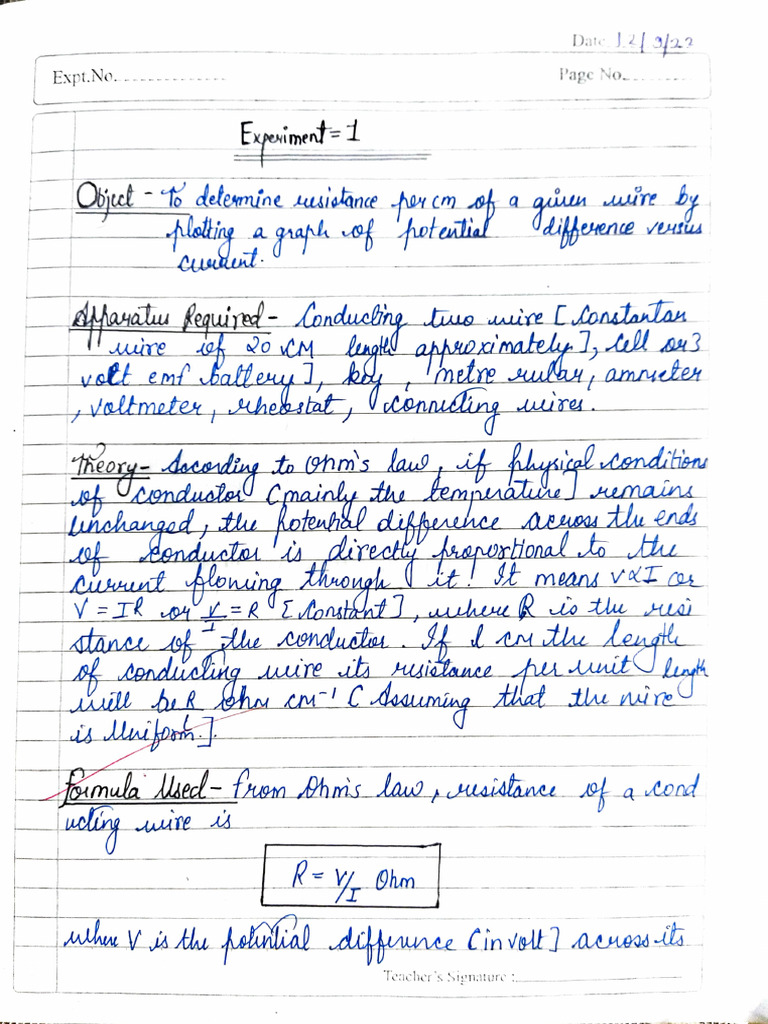 Date 12/9/22
Expt.No.
Page No.
Experiment = 1
Object - To determine resistance per cm of a given wire by
plotting a graph of potential difference versus
current.
Apparatus Required - Conducting two wire [Constantan
wire of 20 CM length approximately], Cell or 3
volt emf battery], key, metre rular, ammeter
, voltmeter, rheostat, connecting wires.
Theory - According to Ohm's law, if physical conditions
of conductor (mainly the temperature] remains
unchanged, the potential difference across the ends
of conductor is directly proportional to the
current flowing through it. It means V∝I or
V = IR or V/I = R [Constant], where R is the resi
stance of the conductor. If l cm the length
of conducting wire its resistance per unit length
will be R/l ohm cm⁻¹ ( Assuming that the wire
is Uniform].
Formula Used - From Ohm's law, resistance of a cond
ucting wire is
R = V/I Ohm
where V is the potential difference (in volt] across its
Teacher's Signature :